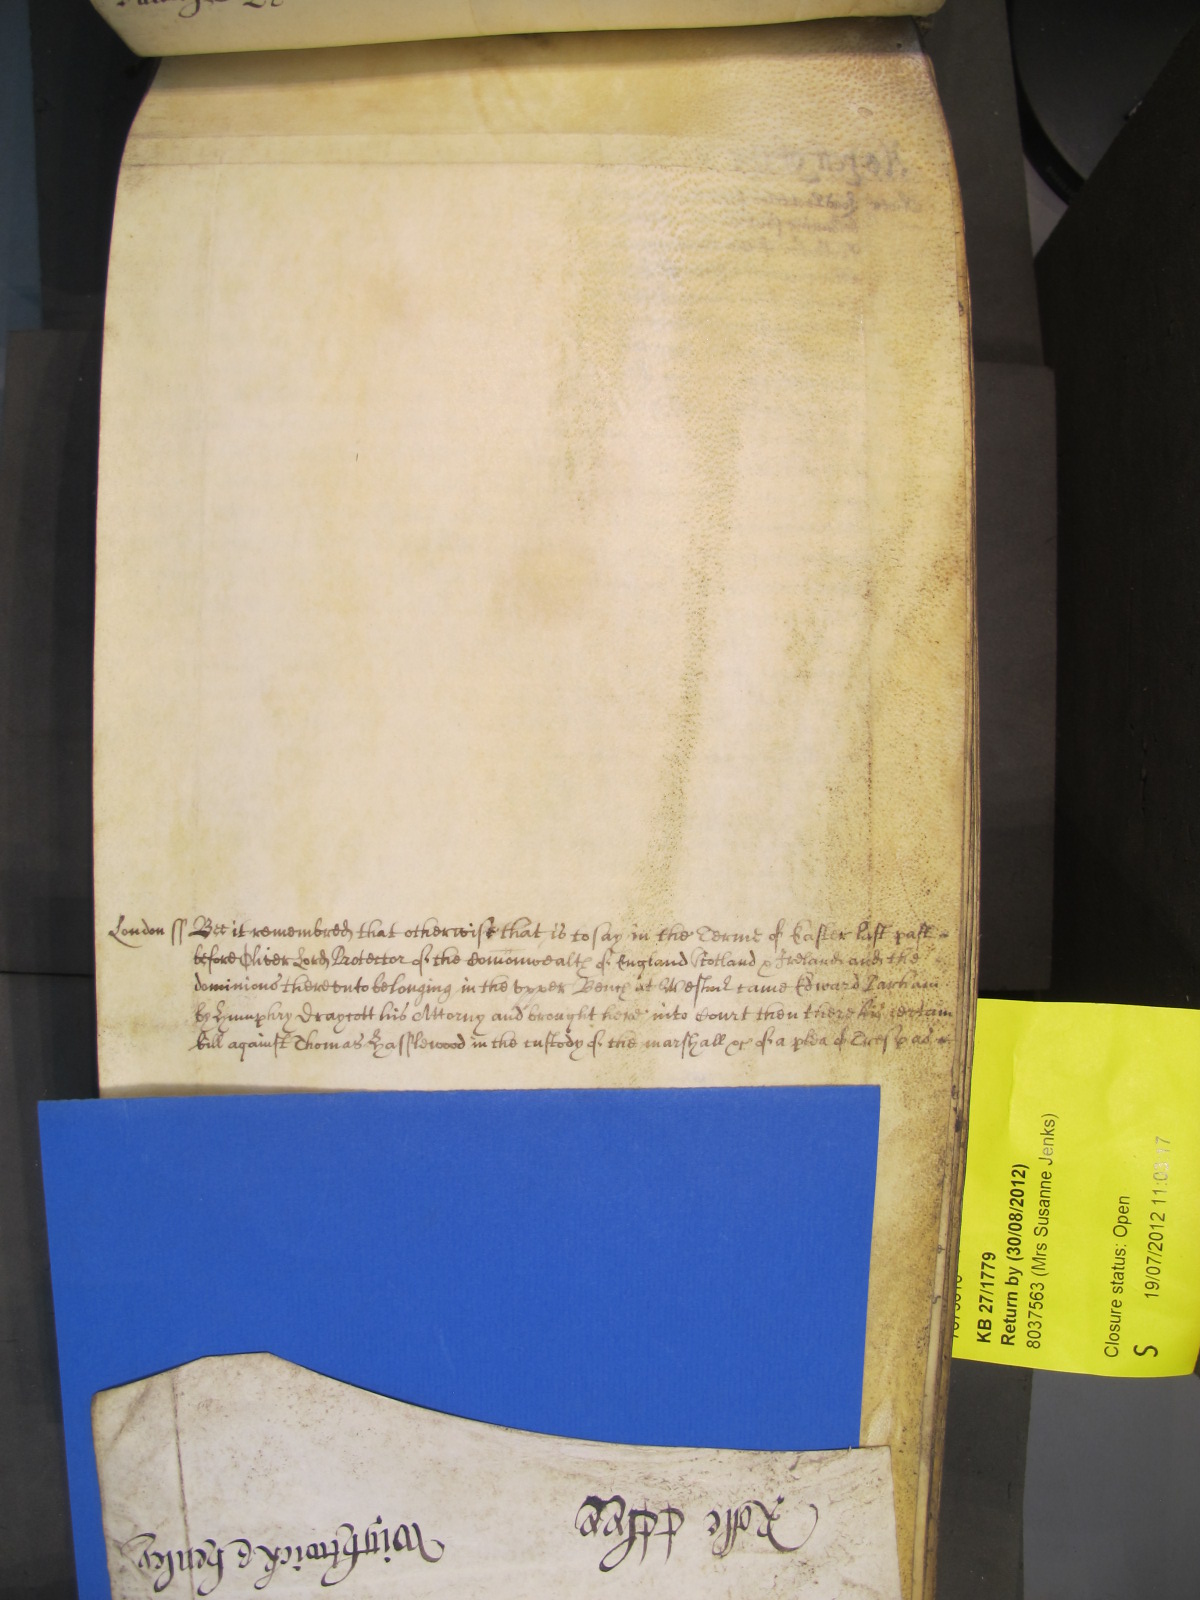 London ss Bee it remembred that otherwise that is to say in the Terme of Easter last past
before Oliver Lord Protector of the Comonwealth of England Scotland & Ireland and the
dominions thereunto belonging in the upper Bench at Westmr came Edward
by Humphry Draycott his Attorny and brought here into Court then there his certain
bill against Thomas Hasslewood in the custody of the marshall &c of a plea of Trespas
KB 27/1779
Return by (30/08/2012)
8037563 (Mrs Susanne Jenks)
Closure status: Open
S 19/07/2012 11:03:17
Rolle
Wightwick & Henley